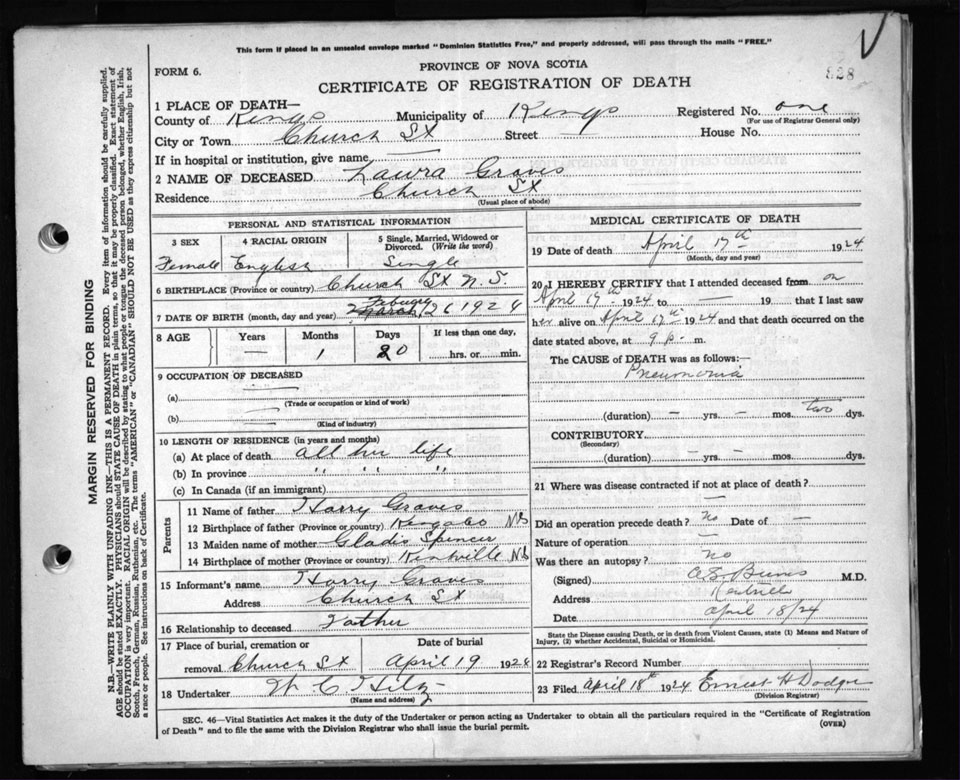 This form if placed in an unsealed envelope marked "Dominion Statistics Free," and properly addressed, will pass through the mails "FREE."
528
PROVINCE OF NOVA SCOTIA
FORM 6.
CERTIFICATE OF REGISTRATION OF DEATH
1 PLACE OF DEATH—
County of Kings Municipality of Kings Registered No. one
(For use of Registrar General only)
City or Town Church St Street — House No.
If in hospital or institution, give name —
2 NAME OF DECEASED Laura Graves
Residence Church St
(Usual place of abode)
PERSONAL AND STATISTICAL INFORMATION
3 SEX 4 RACIAL ORIGIN 5 Single, Married, Widowed or Divorced. (Write the word)
Female English Single
6 BIRTHPLACE (Province or country) Church St N.S.
7 DATE OF BIRTH (month, day and year) March 26 1924
8 AGE Years Months Days If less than one day,
— 1 20 hrs. or min.
9 OCCUPATION OF DECEASED
(a) —
(Trade or occupation or kind of work)
(b) —
(Kind of industry)
10 LENGTH OF RESIDENCE (in years and months)
(a) At place of death all her life
(b) In province " " "
(c) In Canada (if an immigrant)
Parents
11 Name of father Harry Graves
12 Birthplace of father (Province or country) NS
13 Maiden name of mother Gladis Spencer
14 Birthplace of mother (Province or country) Kentville NS
15 Informant's name Harry Graves
Address Church St
16 Relationship to deceased Father
17 Place of burial, cremation or removal Date of burial
Church St April 19 1924
18 Undertaker W C Hilz
(Name and address)
MEDICAL CERTIFICATE OF DEATH
19 Date of death April 17th 1924
(Month, day and year)
20 I HEREBY CERTIFY that I attended deceased from on
April 17th 1924 to — 19 that I last saw
her alive on April 17th 1924 and that death occurred on the
date stated above, at 9 p. m.
The CAUSE of DEATH was as follows:—
Pneumonia
(duration) — yrs. — mos. two dys.
CONTRIBUTORY
(Secondary)
(duration) — yrs. — mos. — dys.
21 Where was disease contracted if not at place of death?
—
Did an operation precede death? no Date of —
Nature of operation —
Was there an autopsy? no
(Signed) M.D.
Address Kentville
Date April 18/24
State the Disease causing Death, or in death from Violent Causes, state (1) Means and Nature of Injury, (2) whether Accidental, Suicidal or Homicidal.
22 Registrar's Record Number
23 Filed April 18th 1924 Ernest H Dodge
(Division Registrar)
SEC. 46—Vital Statistics Act makes it the duty of the Undertaker or person acting as Undertaker to obtain all the particulars required in the "Certificate of Registration
of Death" and to file the same with the Division Registrar who shall issue the burial permit. (OVER)
MARGIN RESERVED FOR BINDING
N.B.—WRITE PLAINLY WITH UNFADING INK—THIS IS A PERMANENT RECORD. Every item of information should be carefully supplied.
AGE should be stated EXACTLY. PHYSICIANS should STATE CAUSE OF DEATH in plain terms, so that it may be properly classified. Exact statement of
OCCUPATION is very important. RACIAL ORIGIN will be described by stating to what people or tongue the deceased person belonged, whether English, Irish,
Scotch, French, German, Russian, Ruthenian, etc. The terms "AMERICAN" or "CANADIAN" SHOULD NOT BE USED as they express citizenship but not
a race or people. See instructions on back of Certificate.